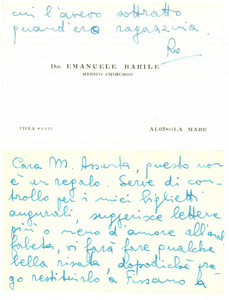 cui l'avevo sottratto
quand'ero ragazzina.
DR. EMANUELE BARILE
MEDICO CHIRURGO
VILLA
ALBISOLA MARE
Cara M. Assunta, questo non
è un regalo. Serve di con-
trollo per i miei biglietti
augurali, suggerisce lettere
più o meno d'amore all'anal
fabeta, vi farà fare qualche
bella risata, dopodiché pre
go restituirlo a Fissano a